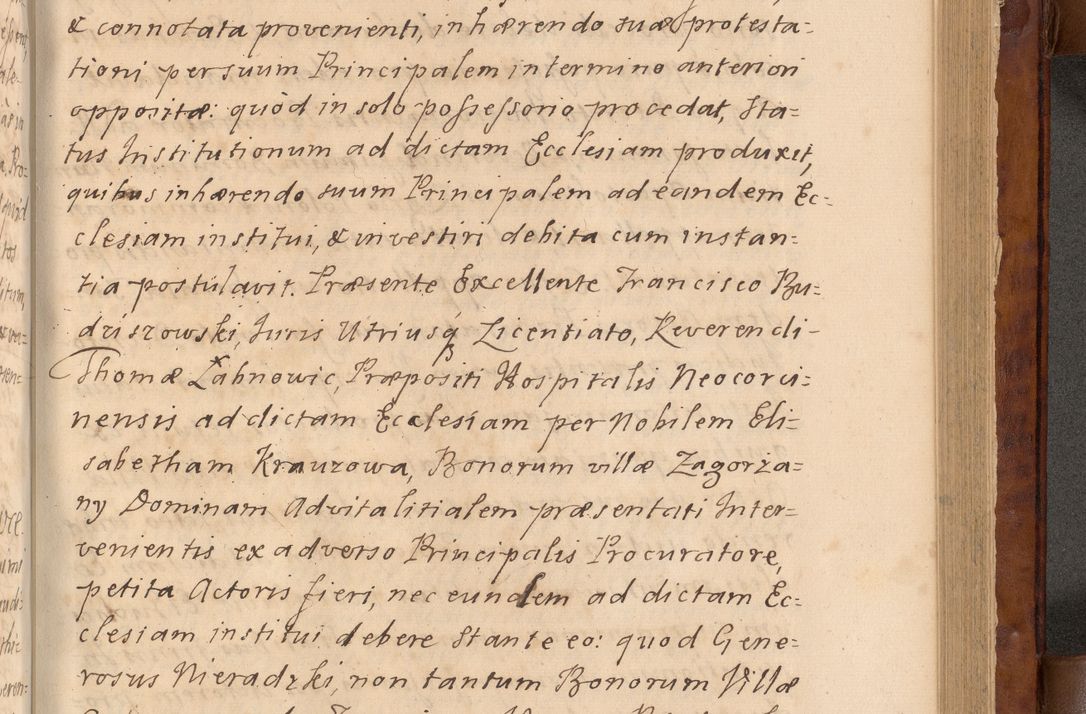 & connotata provenienti, inhærendo suæ protesta=
tioni per suum Principalem in termino anteriori
oppositæ: quòd in solo possessorio procedat, Sta=
tus Institutionum ad dictam Ecclesiam produxit,
quibus inhærendo suum Principalem ad eandem Ec=
clesiam institui, & investiri debita cum instan=
tia postulavit. Præsente Excellente Francisco Bu=
dziszowski, Iuris Utriusq́ Licentiato, Reverendi-
Thomæ Żabnowic, Præpositi Hospitalis Neocorci=
nensis ad dictam Ecclesiam per Nobilem Eli=
sabetham Krauzowa, Bonorum villæ Zagorza=
ny Dominam Advitalitialem præsentati Inter=
venientis ex adverso Principalis Procuratore,
petita Actoris fieri, nec eundem ad dictam Ec=
clesiam institui debere stante eo: quod Gene=
rosus Nieradzki, non tantum Bonorum Villæ